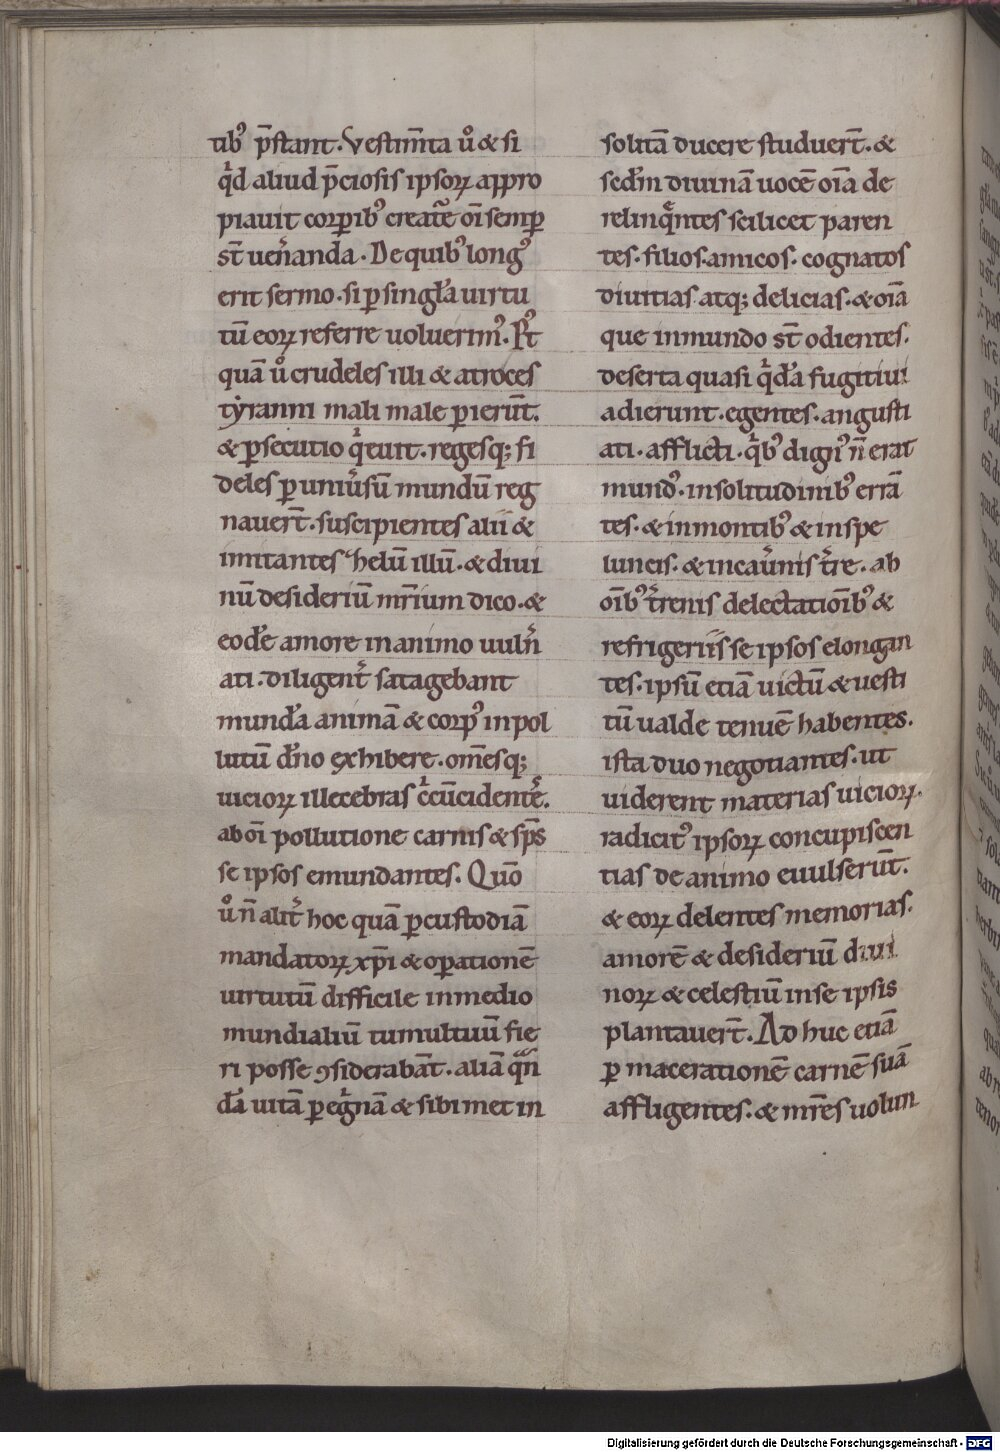 tibꝰ p̄stant. Vestim̅ta uͦ & si
qͥd aliud p̄ciosis ipsoꝝ appro
piauit corꝑibꝰ creat̃e oi̅ semꝑ
st̅ uen̾anda. De quibꝰ longꝰ
erit sermo. si ꝑ singl̕a uirtu
tu̅ eoꝝ referre uoluerimꝰ. P̾t
qua̅ uͦ crudeles illi & atroces
tẏranni mali male ꝑieru̅t.
& ꝑsecutio qͥeuit. regesq; fi
deles ꝑ uniu̾su̅ mundu̅ reg
nauer̅t. suscipientes alii &
imitantes helu̅ illu̅. & diui
nu̅ desideriu̅ mr̅ium dico. &
eode̅ amore in animo uuln̾
ati. diligent̾ satagebant
munda̅ anima̅ & corpꝰ inpol
lutu̅ dn̅o exhibere. om̅esq;
uicioꝝ illecebras cͥcu̅cidente̾.
ab oi̅ pollutione carnis & sp̅s
se ipsos emundantes. Quo̅
uͦ n̅ alit̾ hoc qua̅ ꝑ custodia̅
mandatoꝝ xp̅i & oꝑatione̅
uirtutu̅ difficile in medio
mundialiu̅ tumultuu̅ fie
ri posse ꝯsideraba̅t. alia̅ qᷓn̅
da̅ uita̅ ꝑegͥna̅ & sibimet in
solita̅ ducere studuer̅t. &
sed̅m diuina̅ uoce̅ oi̅a de
relinqͥntes scilicet paren
tes. filios. amicos. cognatos
diuitias atq; delicias. & oi̅a
que in mundo st̅ odientes.
deserta quasi qͥda̅ fugitiui
adierunt. egentes. angusti
ati. afflicti. qͥbꝰ dignꝰ n̅ erat
mundꝰ. in solitudinibꝰ erra̅
tes. & in montibꝰ & in spe
luncis. & in cau̾nis t̾re. ab
oi̅bꝰ t̾renis delectatioi̅bꝰ &
refrigeriis se ipsos elongan
tes. ipsu̅ etia̅ uictu̅ & uesti
tu̅ ualde tenue̅ habentes.
ista duo negotiantes. ut
uiderent materias uicioꝝ.
radicitꝰ ipsoꝝ concupiscen
tias de animo euulseru̅t.
& eoꝝ delentes memorias.
amore̅ & desideriu̅ diui
noꝝ & celestiu̅ in se ipsis
plantauer̅t. Ad huc etia̅
ꝑ maceratione̅ carne̅ sua̅
affligentes. & mr̅es uolun
Digitalisierung gefördert durch die Deutsche Forschungsgemeinschaft - DFG